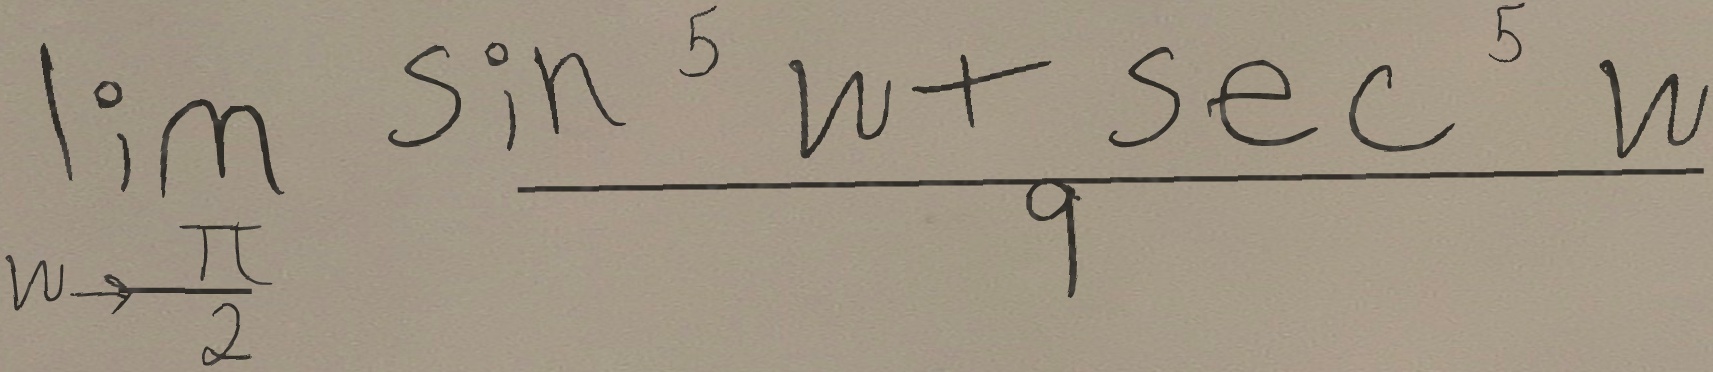 \lim_{w \to \frac{\pi}{2}} \frac{\sin^5 w + \sec^5 w}{9}